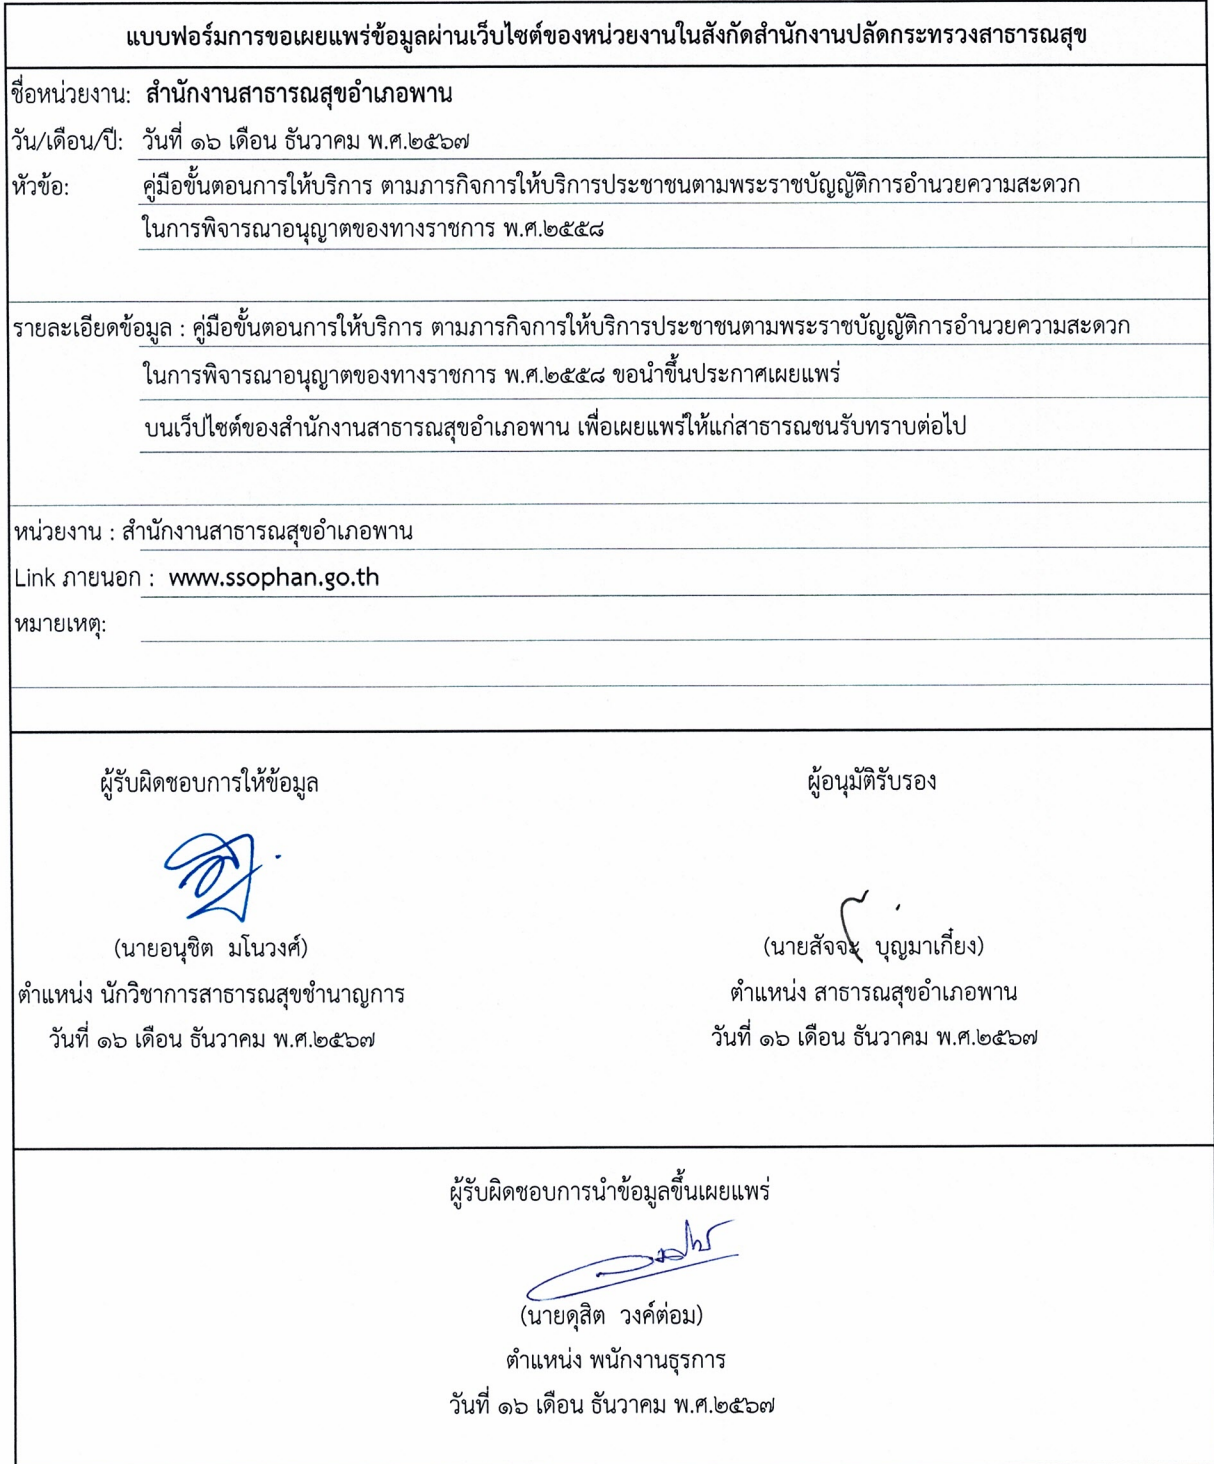 แบบฟอร์มการขอเผยแพร่ข้อมูลผ่านเว็บไซต์ของหน่วยงานในสังกัดสำนักงานปลัดกระทรวงสาธารณสุข
ชื่อหน่วยงาน: สำนักงานสาธารณสุขอำเภอพาน
วัน/เดือน/ปี: วันที่ ๑๖ เดือน ธันวาคม พ.ศ.๒๕๖๗
หัวข้อ: คู่มือขั้นตอนการให้บริการ ตามภารกิจการให้บริการประชาชนตามพระราชบัญญัติการอำนวยความสะดวก
ในการพิจารณาอนุญาตของทางราชการ พ.ศ.๒๕๕๘
รายละเอียดข้อมูล : คู่มือขั้นตอนการให้บริการ ตามภารกิจการให้บริการประชาชนตามพระราชบัญญัติการอำนวยความสะดวก
ในการพิจารณาอนุญาตของทางราชการ พ.ศ.๒๕๕๘ ขอนำขึ้นประกาศเผยแพร่
บนเว็ปไซต์ของสำนักงานสาธารณสุขอำเภอพาน เพื่อเผยแพร่ให้แก่สาธารณชนรับทราบต่อไป
หน่วยงาน : สำนักงานสาธารณสุขอำเภอพาน
Link ภายนอก : www.ssophan.go.th
หมายเหตุ:
ผู้รับผิดชอบการให้ข้อมูล
(นายอนุชิต มโนวงศ์)
ตำแหน่ง นักวิชาการสาธารณสุขชำนาญการ
วันที่ ๑๖ เดือน ธันวาคม พ.ศ.๒๕๖๗
ผู้อนุมัติรับรอง
(นายสัจจะ บุญมาเกี๋ยง)
ตำแหน่ง สาธารณสุขอำเภอพาน
วันที่ ๑๖ เดือน ธันวาคม พ.ศ.๒๕๖๗
ผู้รับผิดชอบการนำข้อมูลขึ้นเผยแพร่
(นายดุสิต วงค์ต่อม)
ตำแหน่ง พนักงานธุรการ
วันที่ ๑๖ เดือน ธันวาคม พ.ศ.๒๕๖๗